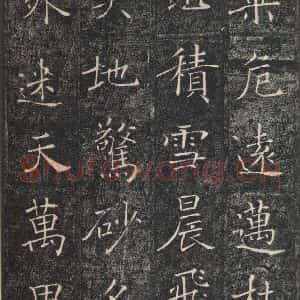 乘危遠邁杖
征積雪晨飛
失地驚砂夕
外迷天萬里
Shufawang.cn